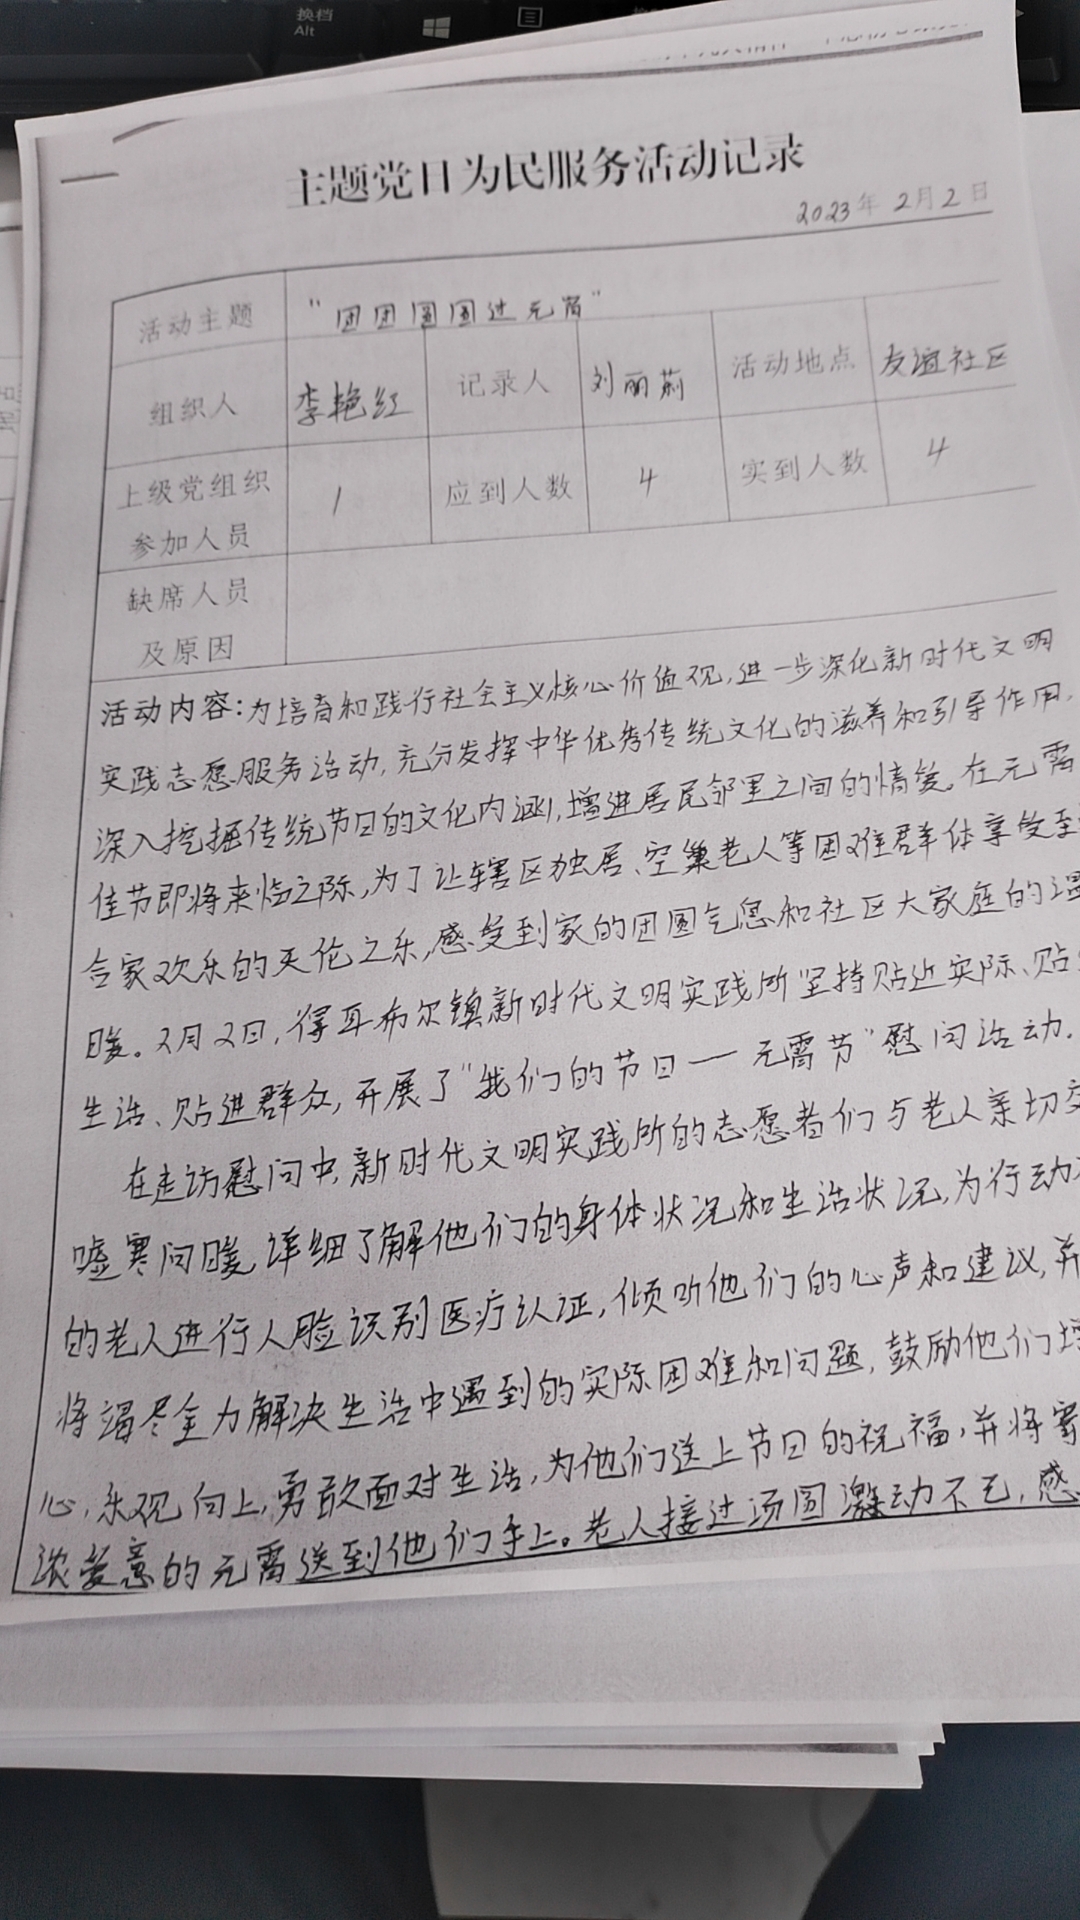 换档
Alt
主题党日为民服务活动记录
2023年 2月 2日
活动主题 "团团圆圆过元宵"
组织人 李艳红 记录人 刘丽莉 活动地点 友谊社区
上级党组织参加人员 1 应到人数 4 实到人数 4
缺席人员及原因
活动内容:为培育和践行社会主义核心价值观,进一步深化新时代文明
实践志愿服务活动,充分发挥中华优秀传统文化的滋养和引导作用,
深入挖掘传统节日的文化内涵,增进居民邻里之间的情爱。在元宵
佳节即将来临之际,为了让辖区独居、空巢老人等困难群体享受到
合家欢乐的天伦之乐,感受到家的团圆气息和社区大家庭的温
暖。2月2日,得耳布尔镇新时代文明实践所坚持贴近实际、贴
生活、贴进群众,开展了"我们的节日一元霄节"慰问活动.
在走访慰问中,新时代文明实践所的志愿者们与老人亲切交
嘘寒问暖,详细了解他们的身体状况和生活状况,为行动
的老人进行人脸识别医疗认证,倾听他们的心声和建议,并
将竭尽全力解决生活中遇到的实际困难和问题,鼓励他们增
心,乐观向上,勇敢面对生活,为他们送上节日的祝福,并将寄
浓爱意的元霄送到他们手上。老人接过汤圆激动不已,感